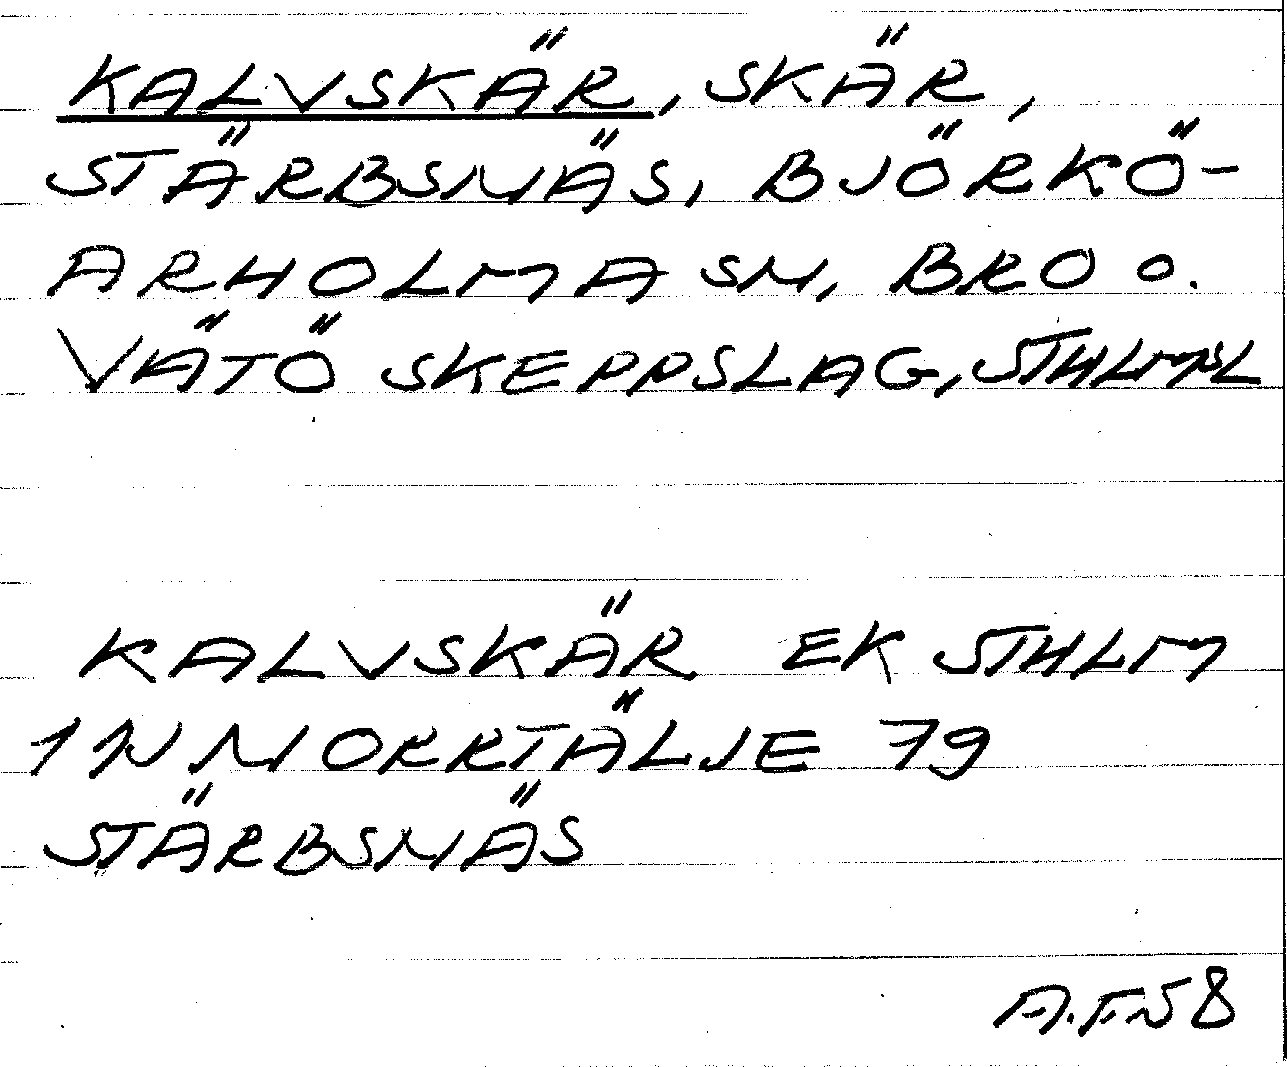 KALVSKÄR, SKÄR,
STÄRBSNÄS, BJÖRKÖ-
ARHOLMA SN, BRO O.
VÄTÖ SKEPPSLAG, STHLMSL
KALVSKÄR EK STHLM
1N NORRTÄLJE 79
STÄRBSNÄS
A.F. 58